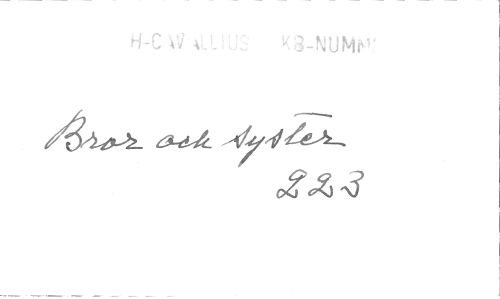 H-CAVALLIUS KB-NUMM
Bror och syster
223